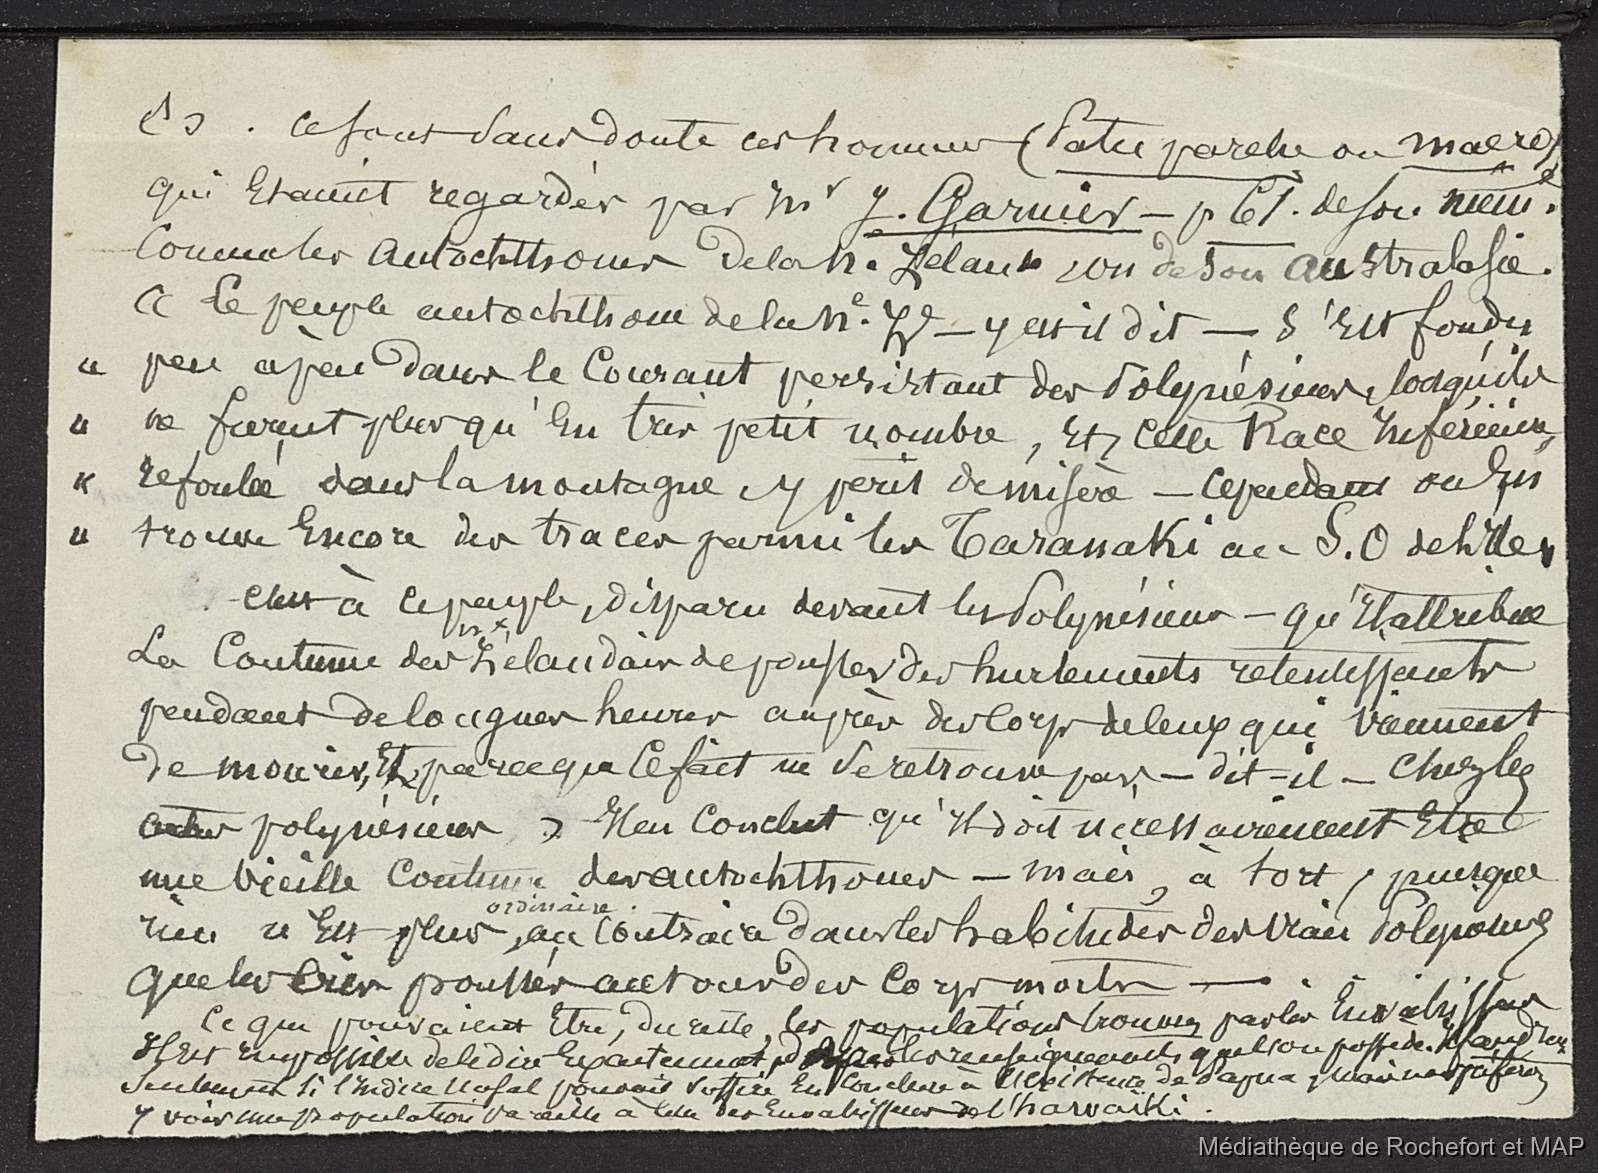 Ce sont sans doute ces hommes (Patu parehe ou maero)
qui étaient regardés par Mr J. Garnier — p 61. de son mém.
comme les autochthones de la N. Zélande ou de son australasie.
« Le peuple autochthone de la Ne. Zde — y est il dit — s'est fondu
" peu à peu dans le Courant persistant des Polynésiens, lorsqu'ils
" ne furent plus qu'en très petit nombre, et cette Race Inférieure,
" refoulée dans la montagne y périt de misère — cependant on en
" trouve Encore des traces parmi les Taranaki au S.O de l'Ile »
c'est à ce peuple, disparu devant les Polynésiens — qu'Il attribue
La Coutume des Nx Zélandais de pousser des hurlements retentissants
pendant de longues heures auprès des Corps de ceux qui viennent
de mourir, Et, parce que ce fait ne se retrouve pas, — dit-il — chez les
autres polynésiens, Il en conclut qu'Il doit nécessairement Etre
une vieille Coutume des autochthones — mais, à tort, puisque
rien n'Est plus ordinaire, au Contraire dans les habitudes des vrais Polynésiens
que les cris poussés autour des Corps morts —
Ce que pouvaient Etre, du reste, les populations trouvées par les Envahisseurs
Il est impossible de le dire Exactement, d'après les renseignements qu'elon possède.
Seulement si l'Indice nasal pouvait suffire En Conclure à l'Existence de Papua, mais
y voir une population pareille à celle des Envahisseurs de l'hawaïki.
Médiathèque de Rochefort et MAP